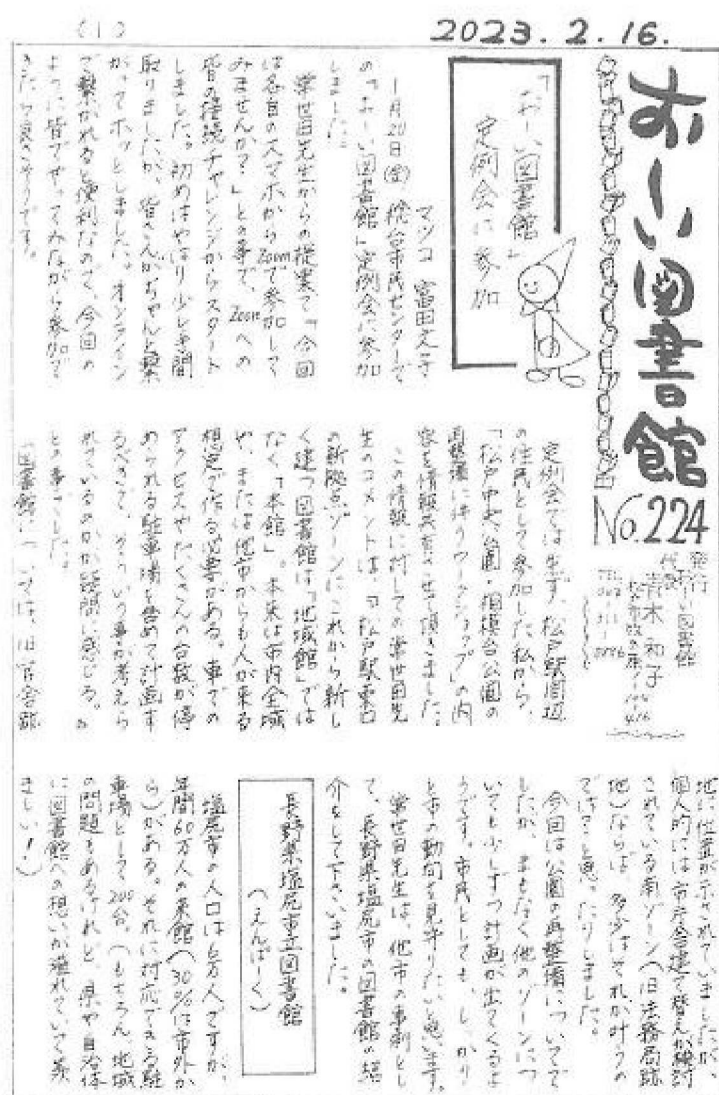 (1)
2023. 2. 16.
おーい図書館
No.224
発行
おーい図書館
代表
青木 和子
「おーい図書館」
定例会に参加
マツコ 富田
1月20日(金) 市民センターで
の「おーい図書館」定例会に参加
しました。
常世田先生からの提案で「今回
は各自のスマホからZoomで参加して
みませんか?」との事で、Zoomへの
皆の接続チャレンジからスタート
しました。初めはやはり少し手間
取りましたが、皆さんがちゃんと繋
がってホッとしました。オンライン
で繋がれると便利なので、今回の
ように皆でやってみながら参加で
きたら良さそうです。
定例会ではまず、松戸駅周辺
の住民として参加した私から、
「松戸中央公園・相模台公園の
再整備に伴うワークショップ」の内
容を情報共有させて頂きました。
この情報に対しての常世田先
生のコメントは、『松戸駅東口
の新拠点ゾーンにこれから新し
く建つ図書館は「地域館」では
なく「本館」。本来は市内全域
や、または他市からも人が来る
想定で作る必要がある。車での
アクセスやたくさんの台数が停
められる駐車場も含めて計画す
るべきで、そういう事が考えら
れているのかが疑問に感じる。』
との事でした。
図書館については、旧官舎跡
地に位置が示されていましたが、
個人的には市庁舎建て替えが検討
されている南ゾーン(旧法務局跡
地)ならば、多少はそれが叶うの
では?と思ったりしました。
今回は公園の再整備についてで
したが、まもなく他のゾーンにつ
いても少しずつ計画が出てくるよ
うです。市民としても、しっかり
と市の動向を見守りたいと思います。
常世田先生は、他市の事例とし
て、長野県塩尻市の図書館の紹
介をして下さいました。
長野県塩尻市立図書館
(えんぱーく)
塩尻市の人口は6万人ですが、
年間60万人の来館(30%は市外か
ら)がある。それに対応できる駐
車場として200台。(もちろん、地域
の問題もあるけれど、県や自治体
に図書館への想いが溢れていて羨
ましい!)